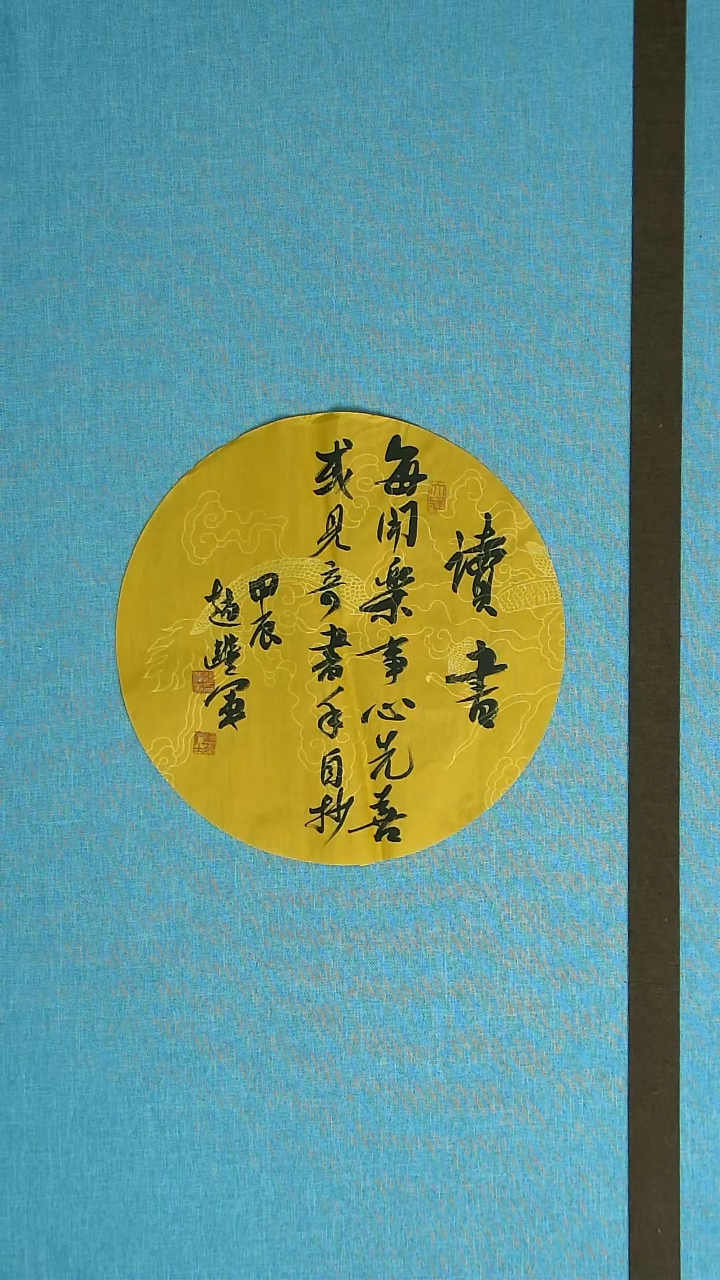 讀書
每聞樂事心先喜
或見奇書手自抄
甲辰
趙
軍